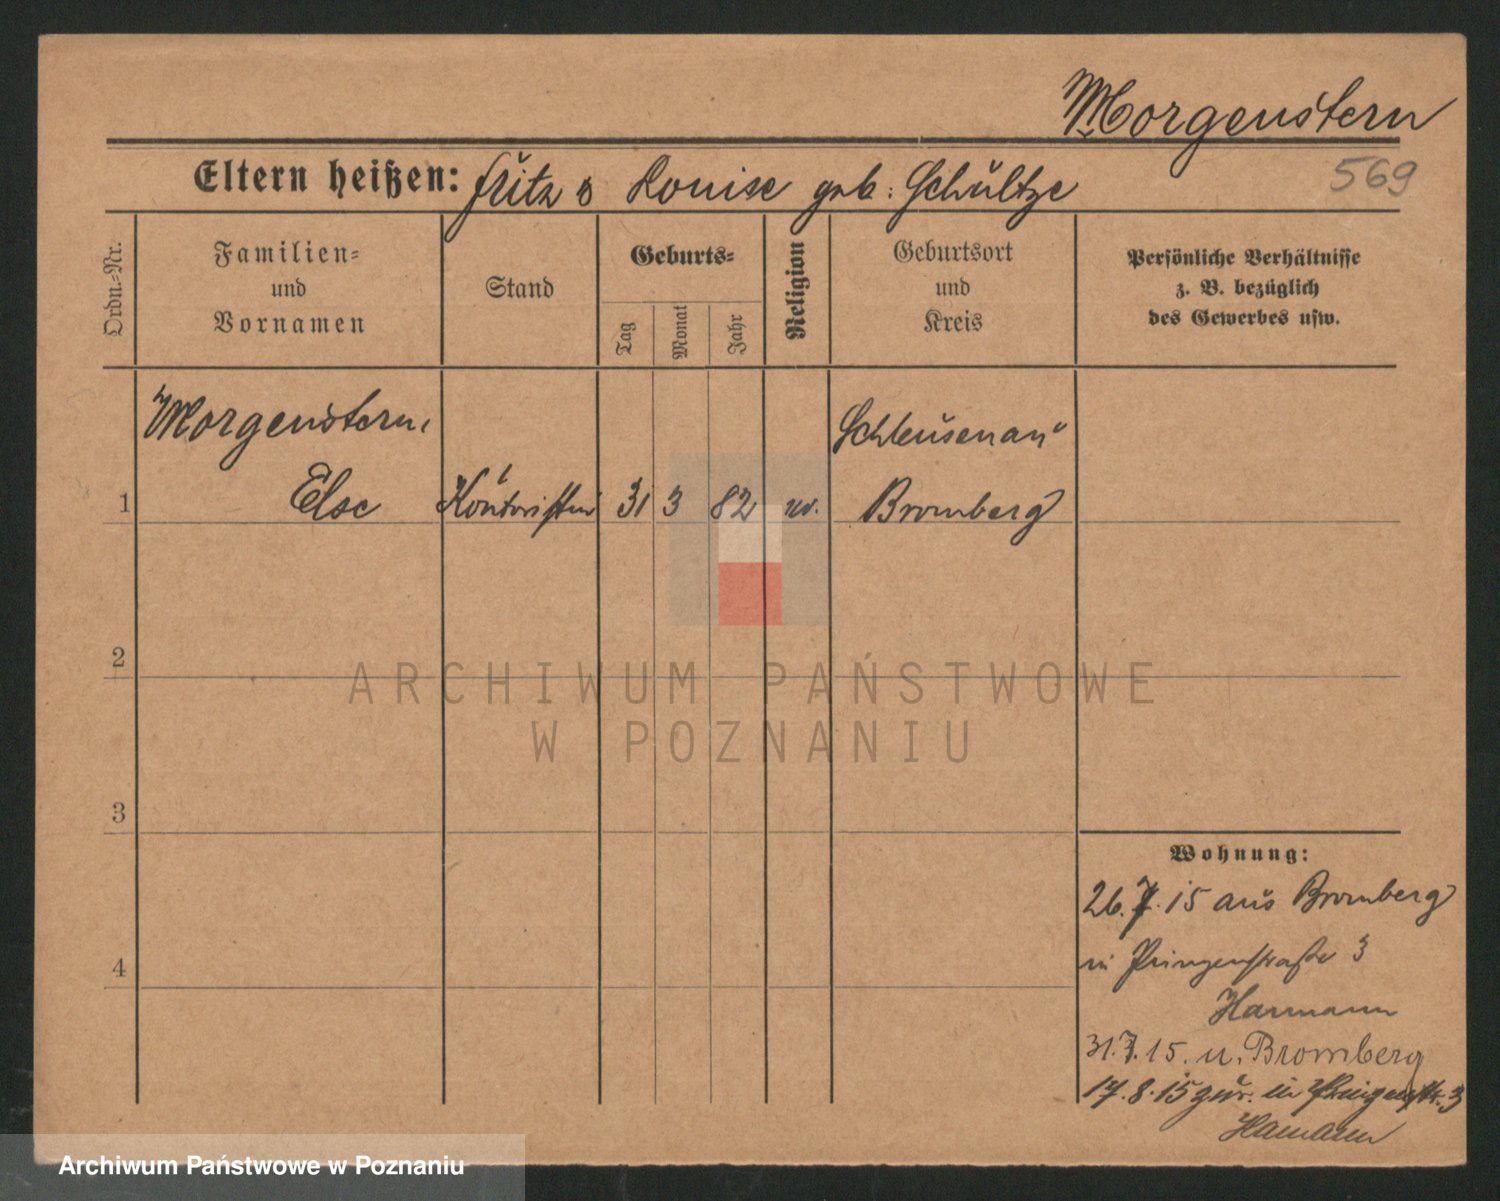 Morgenstern
569
Eltern heißen: Fritz & Louise geb. Schultze
Ordn.-Nr.
Familien-
und
Vornamen
Stand
Geburts-
Tag
Monat
Jahr
Religion
Geburtsort
und
Kreis
Persönliche Verhältnisse
z. B. bezüglich
des Gewerbes usw.
Morgenstern,
Schleusenau
1 Else Kontoristin 31 3 82 ev. Bromberg
2
ARCHIWUM PAŃSTWOWE
W POZNANIU
3
Wohnung:
26.7.15 aus Bromberg
in Prinzenstraße 3
4
31.7.15. n. Bromberg
17.8.15 zur. in Prinzenstr. 3
Archiwum Państwowe w Poznaniu